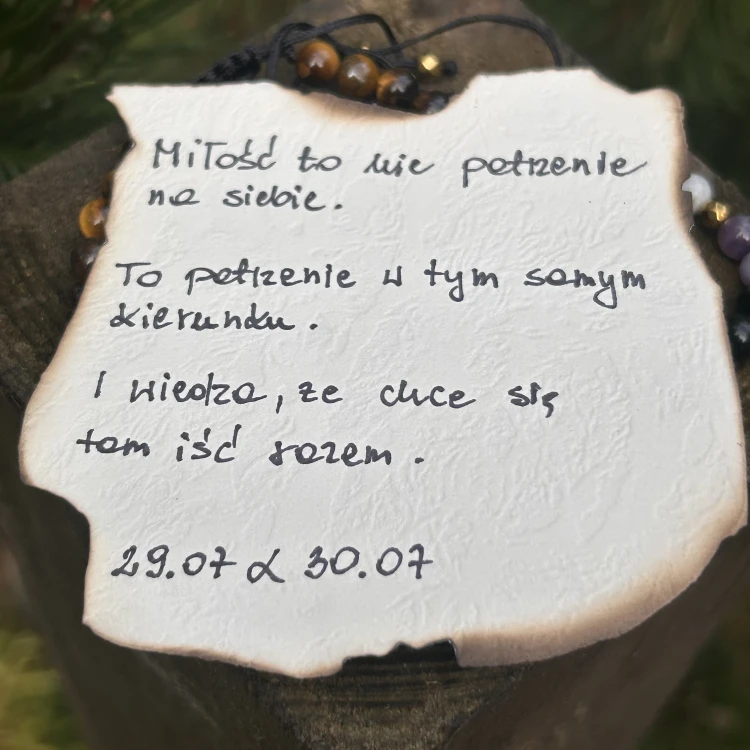 Miłość to nie patrzenie
na siebie.
To patrzenie w tym samym
kierunku.
I wiedza, że chce się
tam iść razem.
29.07 & 30.07